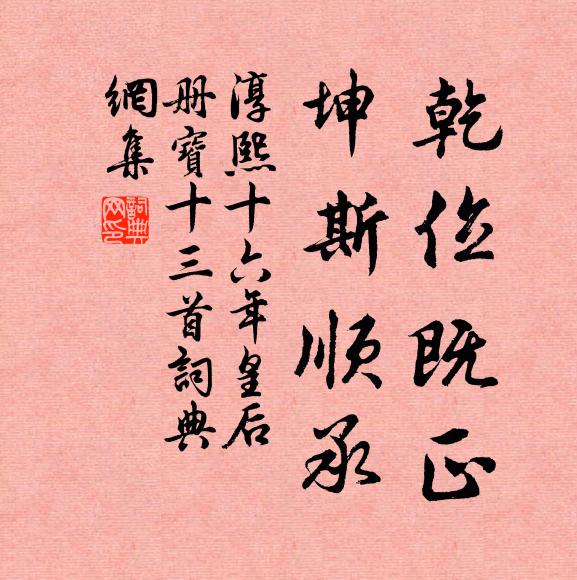 乾位既正
坤斯順承
淳熙十六年皇后
册寶十三首詞典
網集
詞典網印